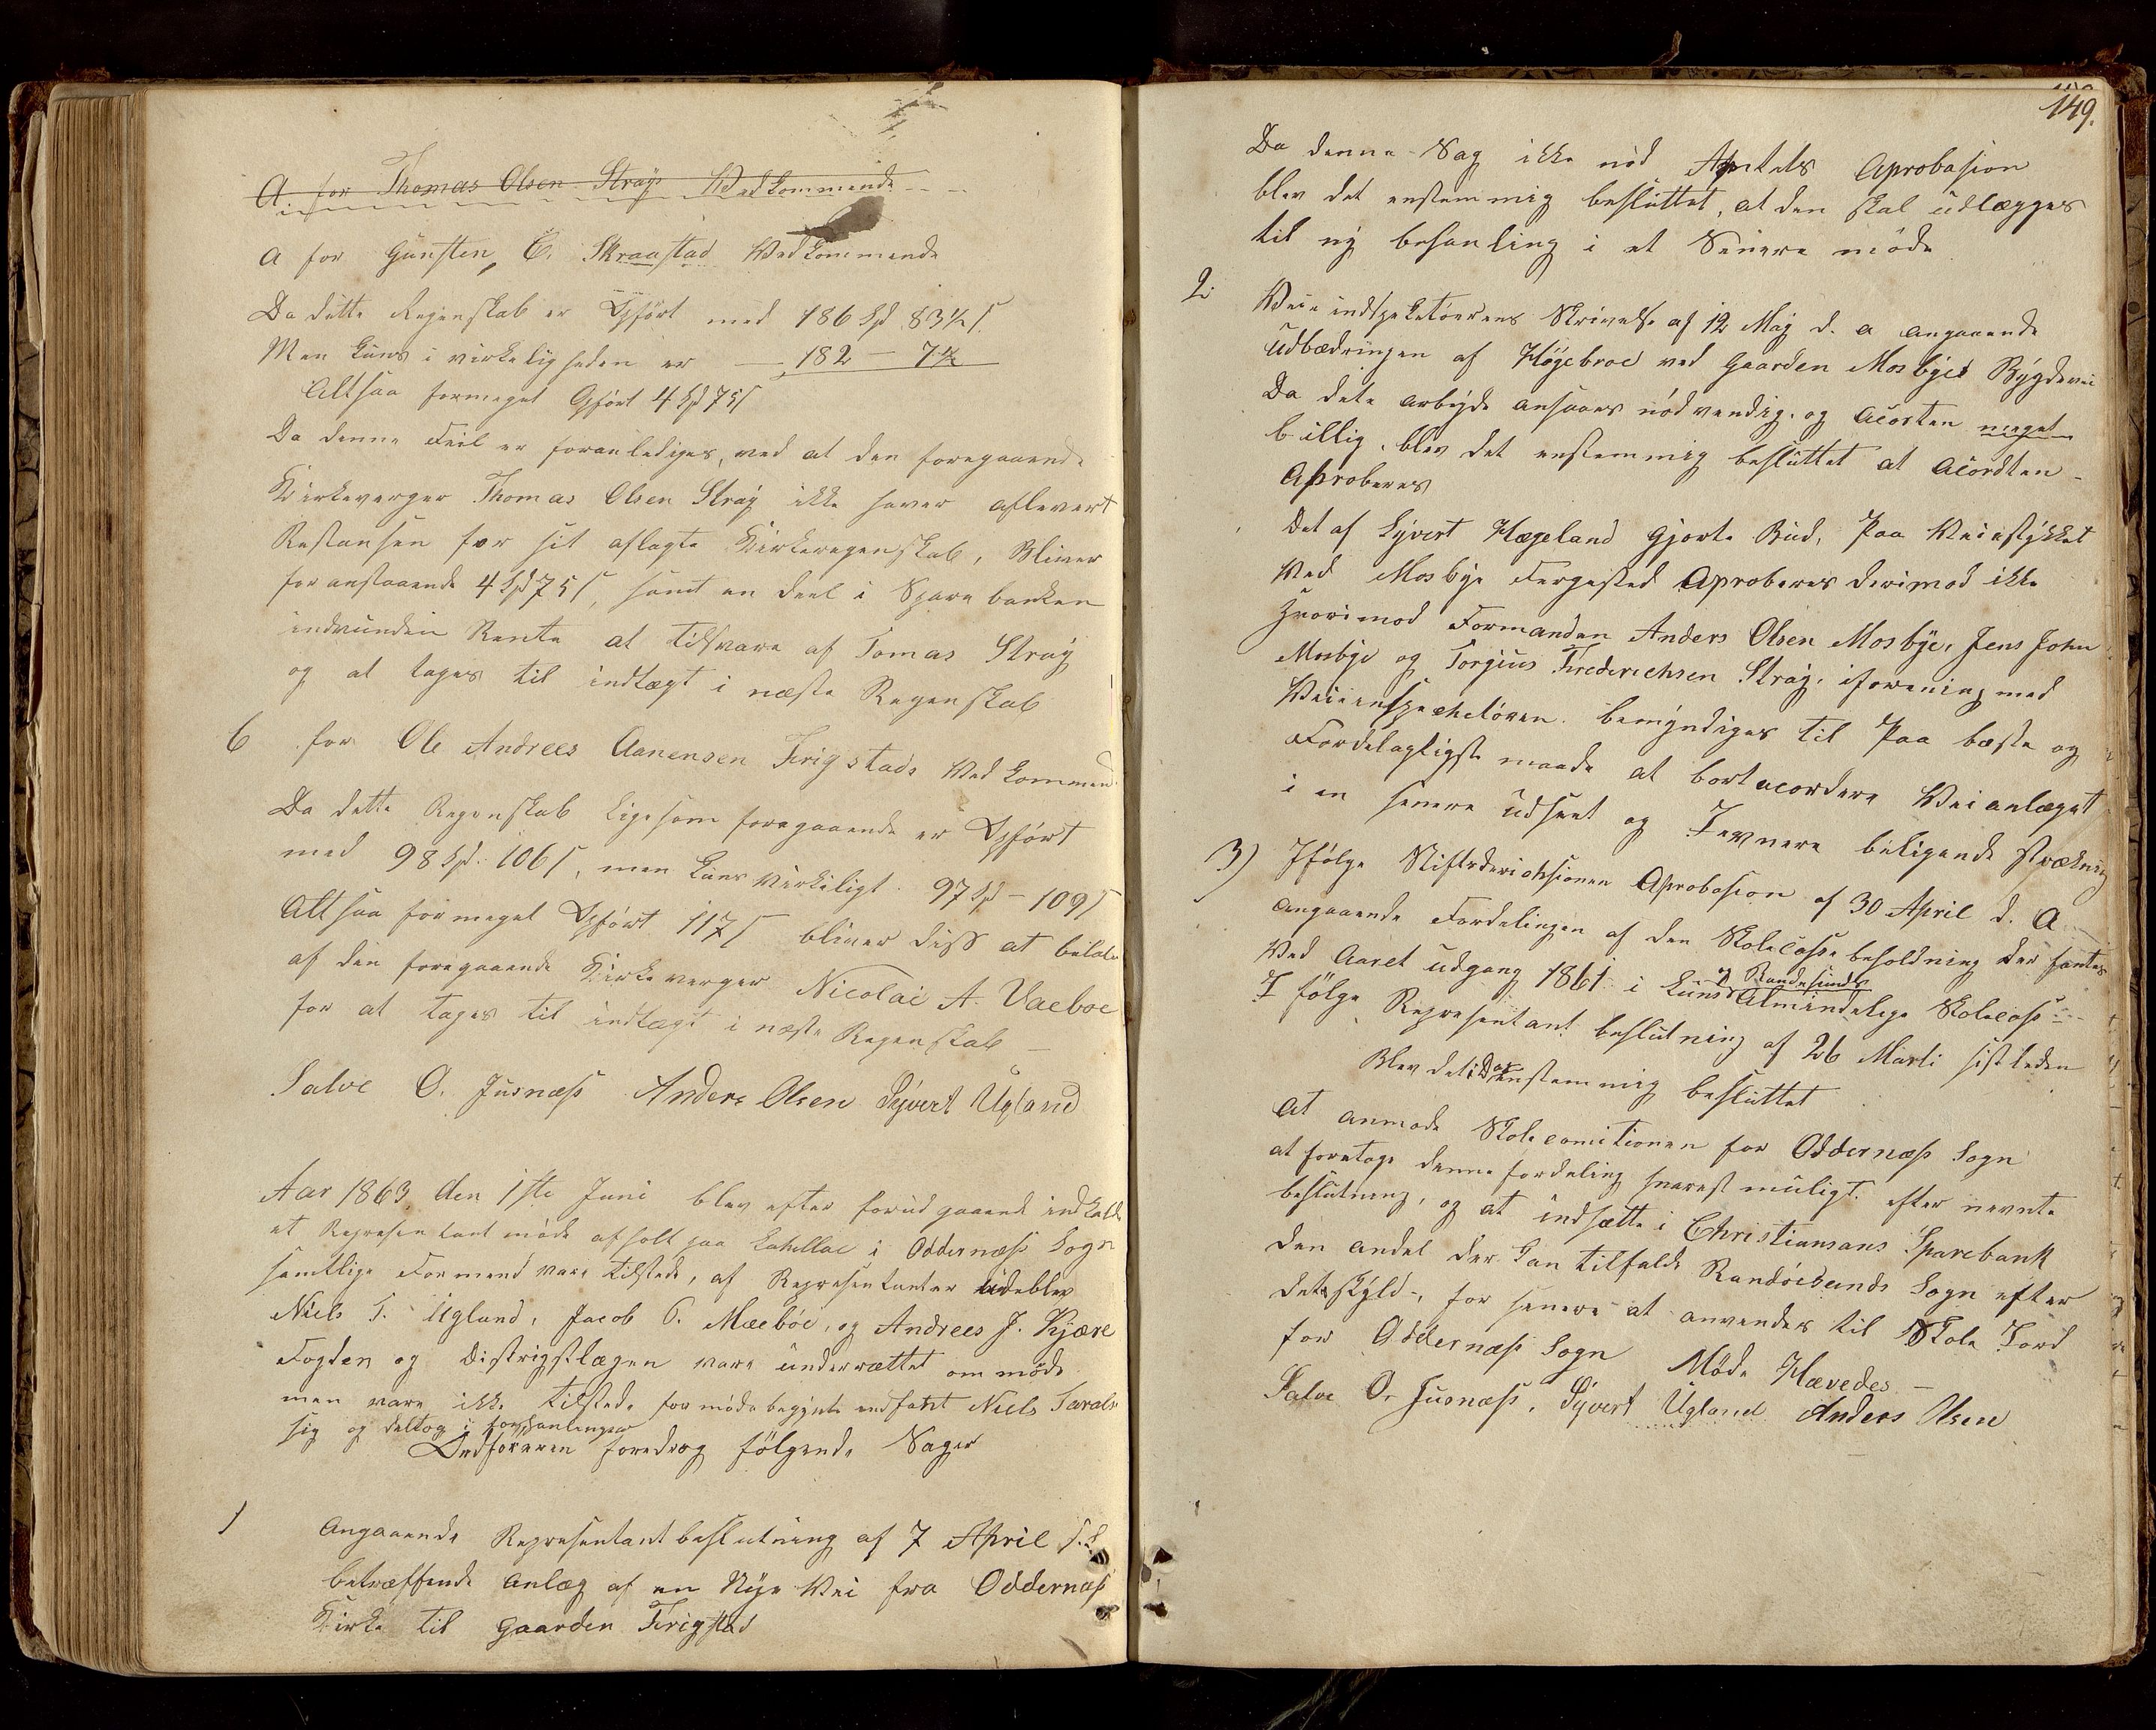 A. for Thomas Olsen Strays Vedkommende
A for Gunsten C. Skraastad Vedkommende
Da dette Regenskab er Opført med 186 Spd 83½ s.
Men kuns i virkeligheden er — 182 — 7½
Altsaa formeget Opført 4 Spd 75 s
Da denne Feil er foranlediges, ved at den foregaaende
Kirkeverger Thomas Olsen Stray ikke haver aflevert
Restansen for sit aflagte Kirkeregenskab, Bliver
foranstaaende 4 Spd 75 s, samt en deel i Sparebanken
indvunden Rente at tilsvare af Tomas Stray
og at tages til indtægt i næste Regenskab
6 for Ole Andrees Aanensen Tirigstads Vedkommen
Da dette Regenskab ligesom foregaaende er Opført
med 98 Spd: 106 s, men kuns virkeligt 97 Spd - 109 s
Altsaa formeget Opført 117 s bliver diss at betale
af den foregaaende Kirkeverger Nicolai A. Vaeboe
for at tages til indtægt i næste Regenskab —
Salve O. Jusnæss Anders Olsen Syvert Ugland
Aar 1863 den 1ste Juni blev efter forudgaaende indkald
et Representantmøde afholt paa i Oddernæss Sogn
samtlige Formend vare tilstede, af Representanter udeblev
Niels T. Ugland, Jacob O. Mæebøe, og Andrees J. Kjære
Fogden og Distrigtslægen vare underrættet om møde
men vare ikke tilstede for møde begynte indfant Niels
sig og deltog i forhanlingen
Ordføreren foredrog følgende Sager
1 Angaaende Representantbeslutning af 7 April s.l.
betræffende Anlæg af en Nye Vei fra Oddernæs
Kirke til gaarden Tirigstad
149.
Da denne Sag ikke nød Amtets Aprobasion
blev det enstemmig besluttet, at den skal udlægges
til ny behanling i et Senere møde
2: Veiindspektøerens Skrivelse af 12 May d. a angaaende
Udbædringen af Høyebroe ved gaarden Mosbyes Bygdevei
Da dete arbyde ansaaes nødvendig, og Acorten meget
billig, blev det enstemmig besluttet at Acordten
Aproberes
Det af Syvert Hægeland gjorte Bud, Paa Veiestykket
Ved Mosbye Fergested Aproberes derimod ikke
hvorimod Formanden Anders Olsen Mosbye, Jens John
Mosbye og Torjus Frederichsen Stray, iforening med
Veieinspechtøren bemyndiges til Paa bæste og
Fordelagtigste maade at bortacordere Veianlæget
i en senere udsent og Jevnere beligende strækning
3) Ifølge Stiftsderichsionen Aprobasion af 30 April d. A
angaaende Fordelingen af den Skolecasse beholdning der fantes
Ved Aaret udgang 1861 i kuns Almindelige Skolecasse
og Randesunds
I følge Representant beslutning af 26 Marti sistleden
Blev det i Dag enstemmig besluttet
At anmode Skolecomitionen for Oddernæss Sogn
at foretage denne fordeling snarest muligt efter nevnte
beslutning, og at indsætte i Christiansans Sparebank
den andel der kan tilfalde Randøesunds Sogn efter
dets skyld, for senere at anvendes til Skole Jord
for Oddernæss Sogn Møde Hævedes —
Salve O. Jusnæss, Syvert Ugland Anders Olsen